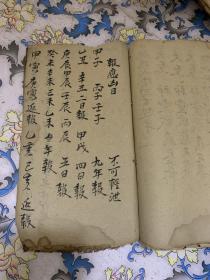 報應凶日 不可輕泄
甲子 丙子 壬子 九年報
乙丑 辛丑二日報 甲戌 四日報
庚辰 甲辰 壬辰 丙辰 五日報
癸未 辛未 三未 乙未 年報
甲寅 寅 返報 乙亥 己亥 返報